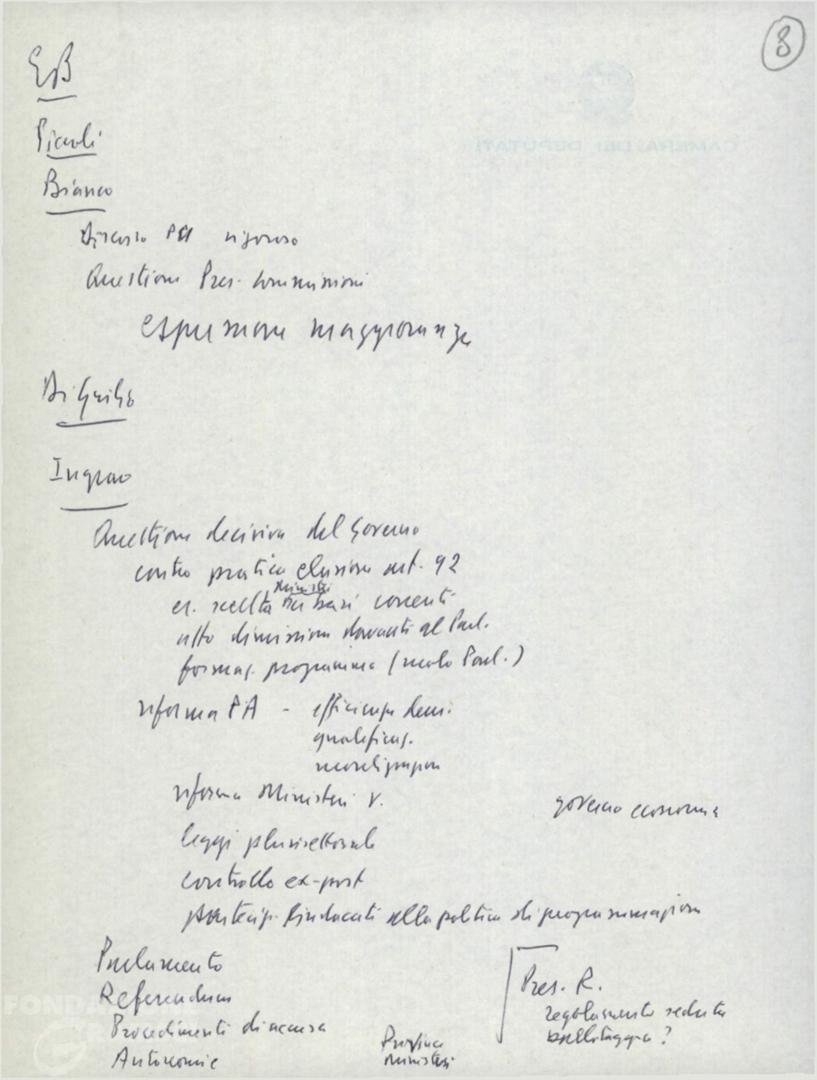 8
EB
Piccoli
Bianco
discorso PCI rigoroso
Questione Pres. commissioni
espressione maggioranza
Di Giulio
Ingrao
Questione decisiva del Governo
contro pratica elusione art. 92
es. scelta Ministri su basi correnti
atto dimissioni davanti al Parl.
formaz. programma (ruolo Parl.)
riforma PA - efficienza
qualificaz.
riforma Ministeri
governo economia
leggi plurisettoriali
controllo ex-post
partecip. sindacati alla politica di programmazione
Parlamento
Referendum
Procedimenti di accusa
Autonomie
Province
ministeri
Pres. R.
regolamento seduta
CAMERA DEI DEPUTATI
FONDAZIONE